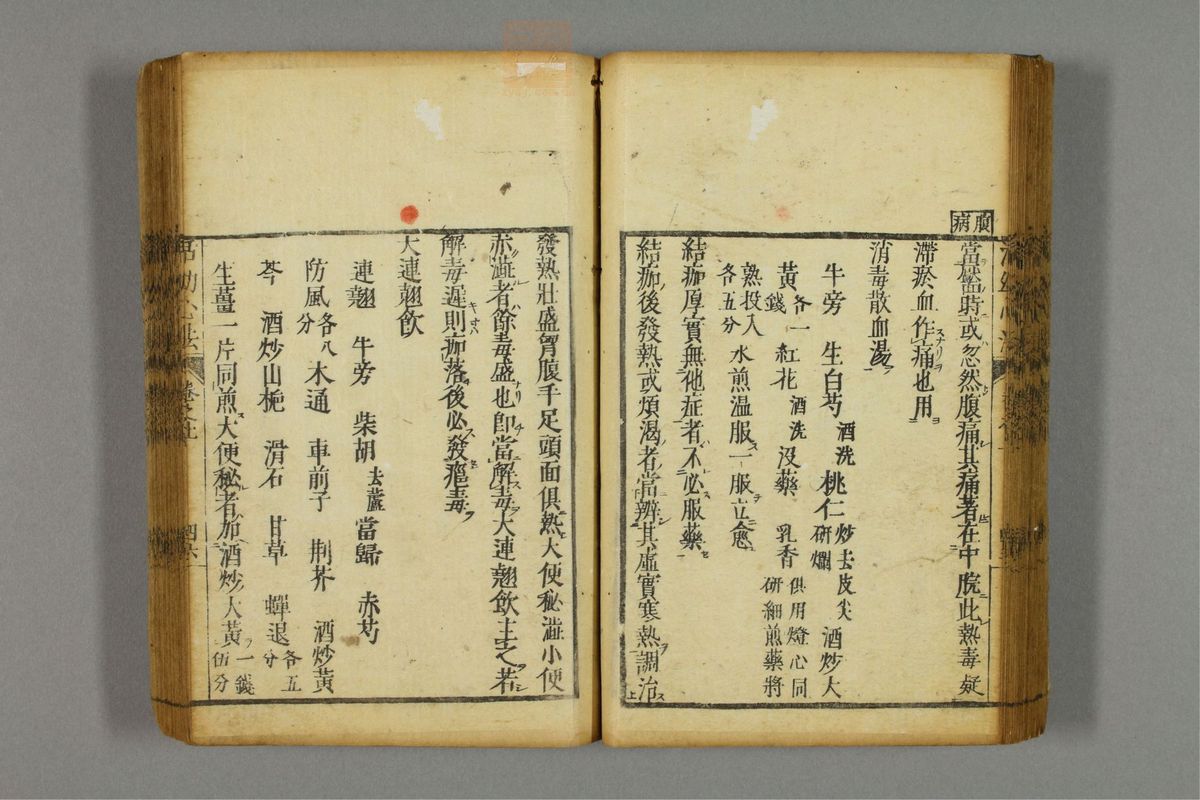 腹病
當盛時或忽然腹痛其痛著在中脘此熱毒疑
滯瘀血作痛也用
消毒散血湯
牛旁 生白芍酒洗 桃仁炒去皮尖研爛 酒炒大
黃各一錢 紅花酒洗 沒藥 乳香俱用燈心同研細煎藥將
熟投入各五分 水煎温服一服立愈
結痂厚實無他症者不必服藥
結痂後發熱或煩渴者當辨其虛實寒熱調治
發熱壯盛胷腹手足頭面俱熱大便秘澁小便
赤澁者餘毒盛也即當解毒大連翹飲主之若
解毒遲則痂落後必發癰毒
大連翹飲
連翹 牛旁 柴胡去蘆 當歸 赤芍
防風各八分 木通 車前子 荆芥 酒炒黃
芩 酒炒山梔 滑石 甘草 蟬退各五分
生薑一片同煎大便秘者加酒炒大黃一錢伍分